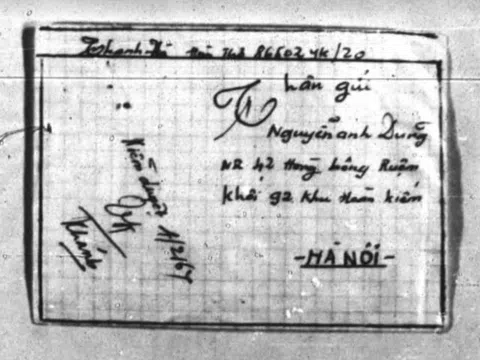 Hòm Thư 86502 YK/20
Thân gửi
Nguyễn anh Dung
NR 42 Hàng bông Ruộm
Khối 92 Khu Hoàn Kiếm
-HÀ NỘI-
Kiểm duyệt 1/2/67
Khánh